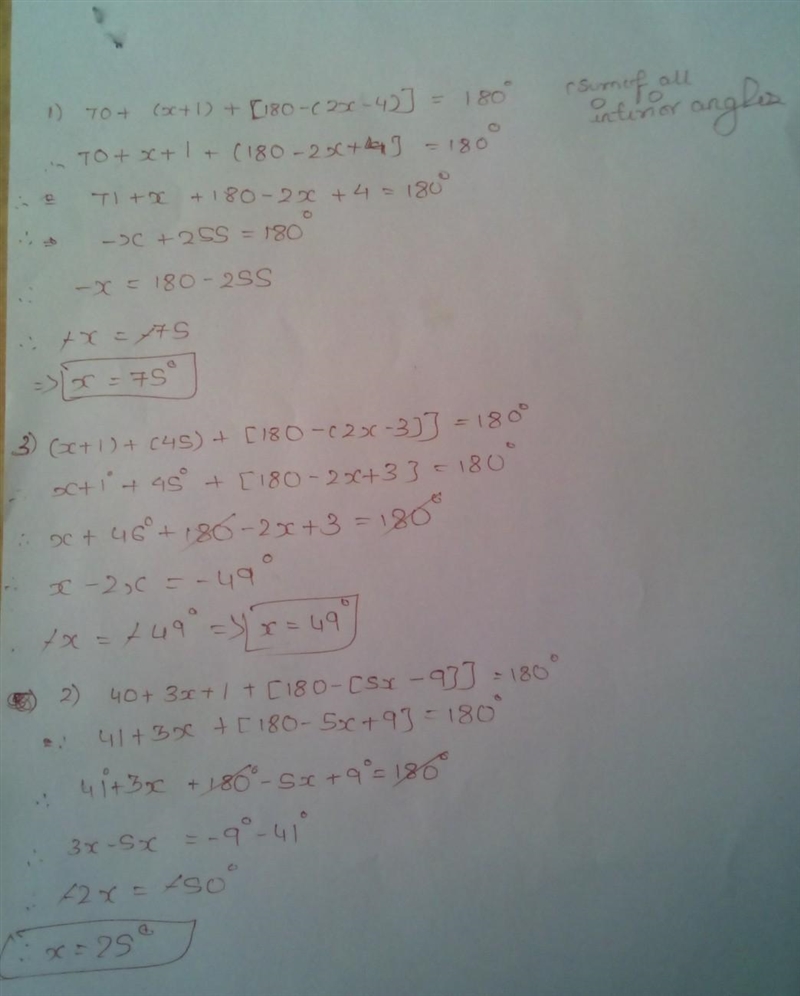 1) 70+ (x+1) + [180-(2x-4)] = 180° (Sum of all interior angles
∴ 70+x+1 + (180-2x+4] = 180°
∴ = 71+x +180-2x +4 = 180°
∴ ⇒ -x + 255 = 180°
∴ -x = 180-255
∴ -x = -75
=> x = 75°
3) (x+1) + (45) + [180-(2x-3)] = 180°
x+1° + 45° + [180-2x+3] = 180°
∴ x + 46° + 180 - 2x+3 = 180°
∴ x -2x = -49°
∴ -x = -49° => x = 49°
2) 40+3x+1 + [180-[5x-9]] = 180°
∴ 41+3x + [180-5x+9] = 180°
∴ 41°+3x +180°-5x+9° = 180°
∴ 3x-5x = -9°-41°
∴ -2x = -50°
∴ x = 25°